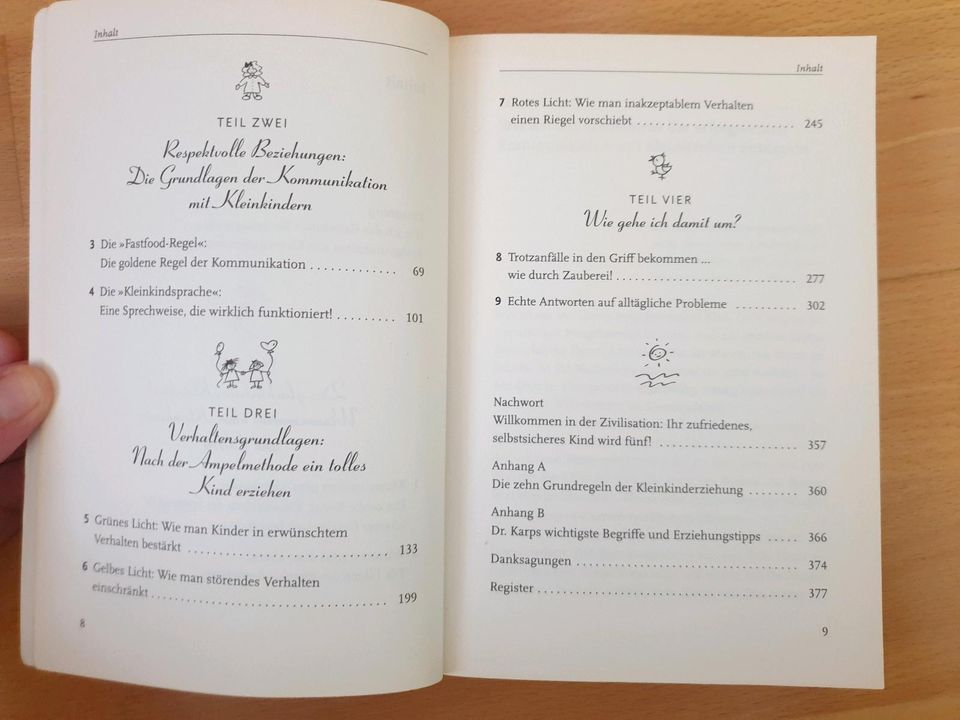 Inhalt
TEIL ZWEI
Respektvolle Beziehungen:
Die Grundlagen der Kommunikation
mit Kleinkindern
3 Die »Fastfood-Regel«:
Die goldene Regel der Kommunikation ............. 69
4 Die »Kleinkindsprache«:
Eine Sprechweise, die wirklich funktioniert! ......... 101
TEIL DREI
Verhaltensgrundlagen:
Nach der Ampelmethode ein tolles
Kind erziehen
5 Grünes Licht: Wie man Kinder in erwünschtem
Verhalten bestärkt ............................. 133
6 Gelbes Licht: Wie man störendes Verhalten
einschränkt .................................. 199
8
Inhalt
7 Rotes Licht: Wie man inakzeptablem Verhalten
einen Riegel vorschiebt .......................... 245
TEIL VIER
Wie gehe ich damit um?
8 Trotzanfälle in den Griff bekommen ...
wie durch Zauberei! ............................. 277
9 Echte Antworten auf alltägliche Probleme .......... 302
Nachwort
Willkommen in der Zivilisation: Ihr zufriedenes,
selbstsicheres Kind wird fünf! ...................... 357
Anhang A
Die zehn Grundregeln der Kleinkinderziehung ........ 360
Anhang B
Dr. Karps wichtigste Begriffe und Erziehungstipps ..... 366
Danksagungen .................................. 374
Register ....................................... 377
9